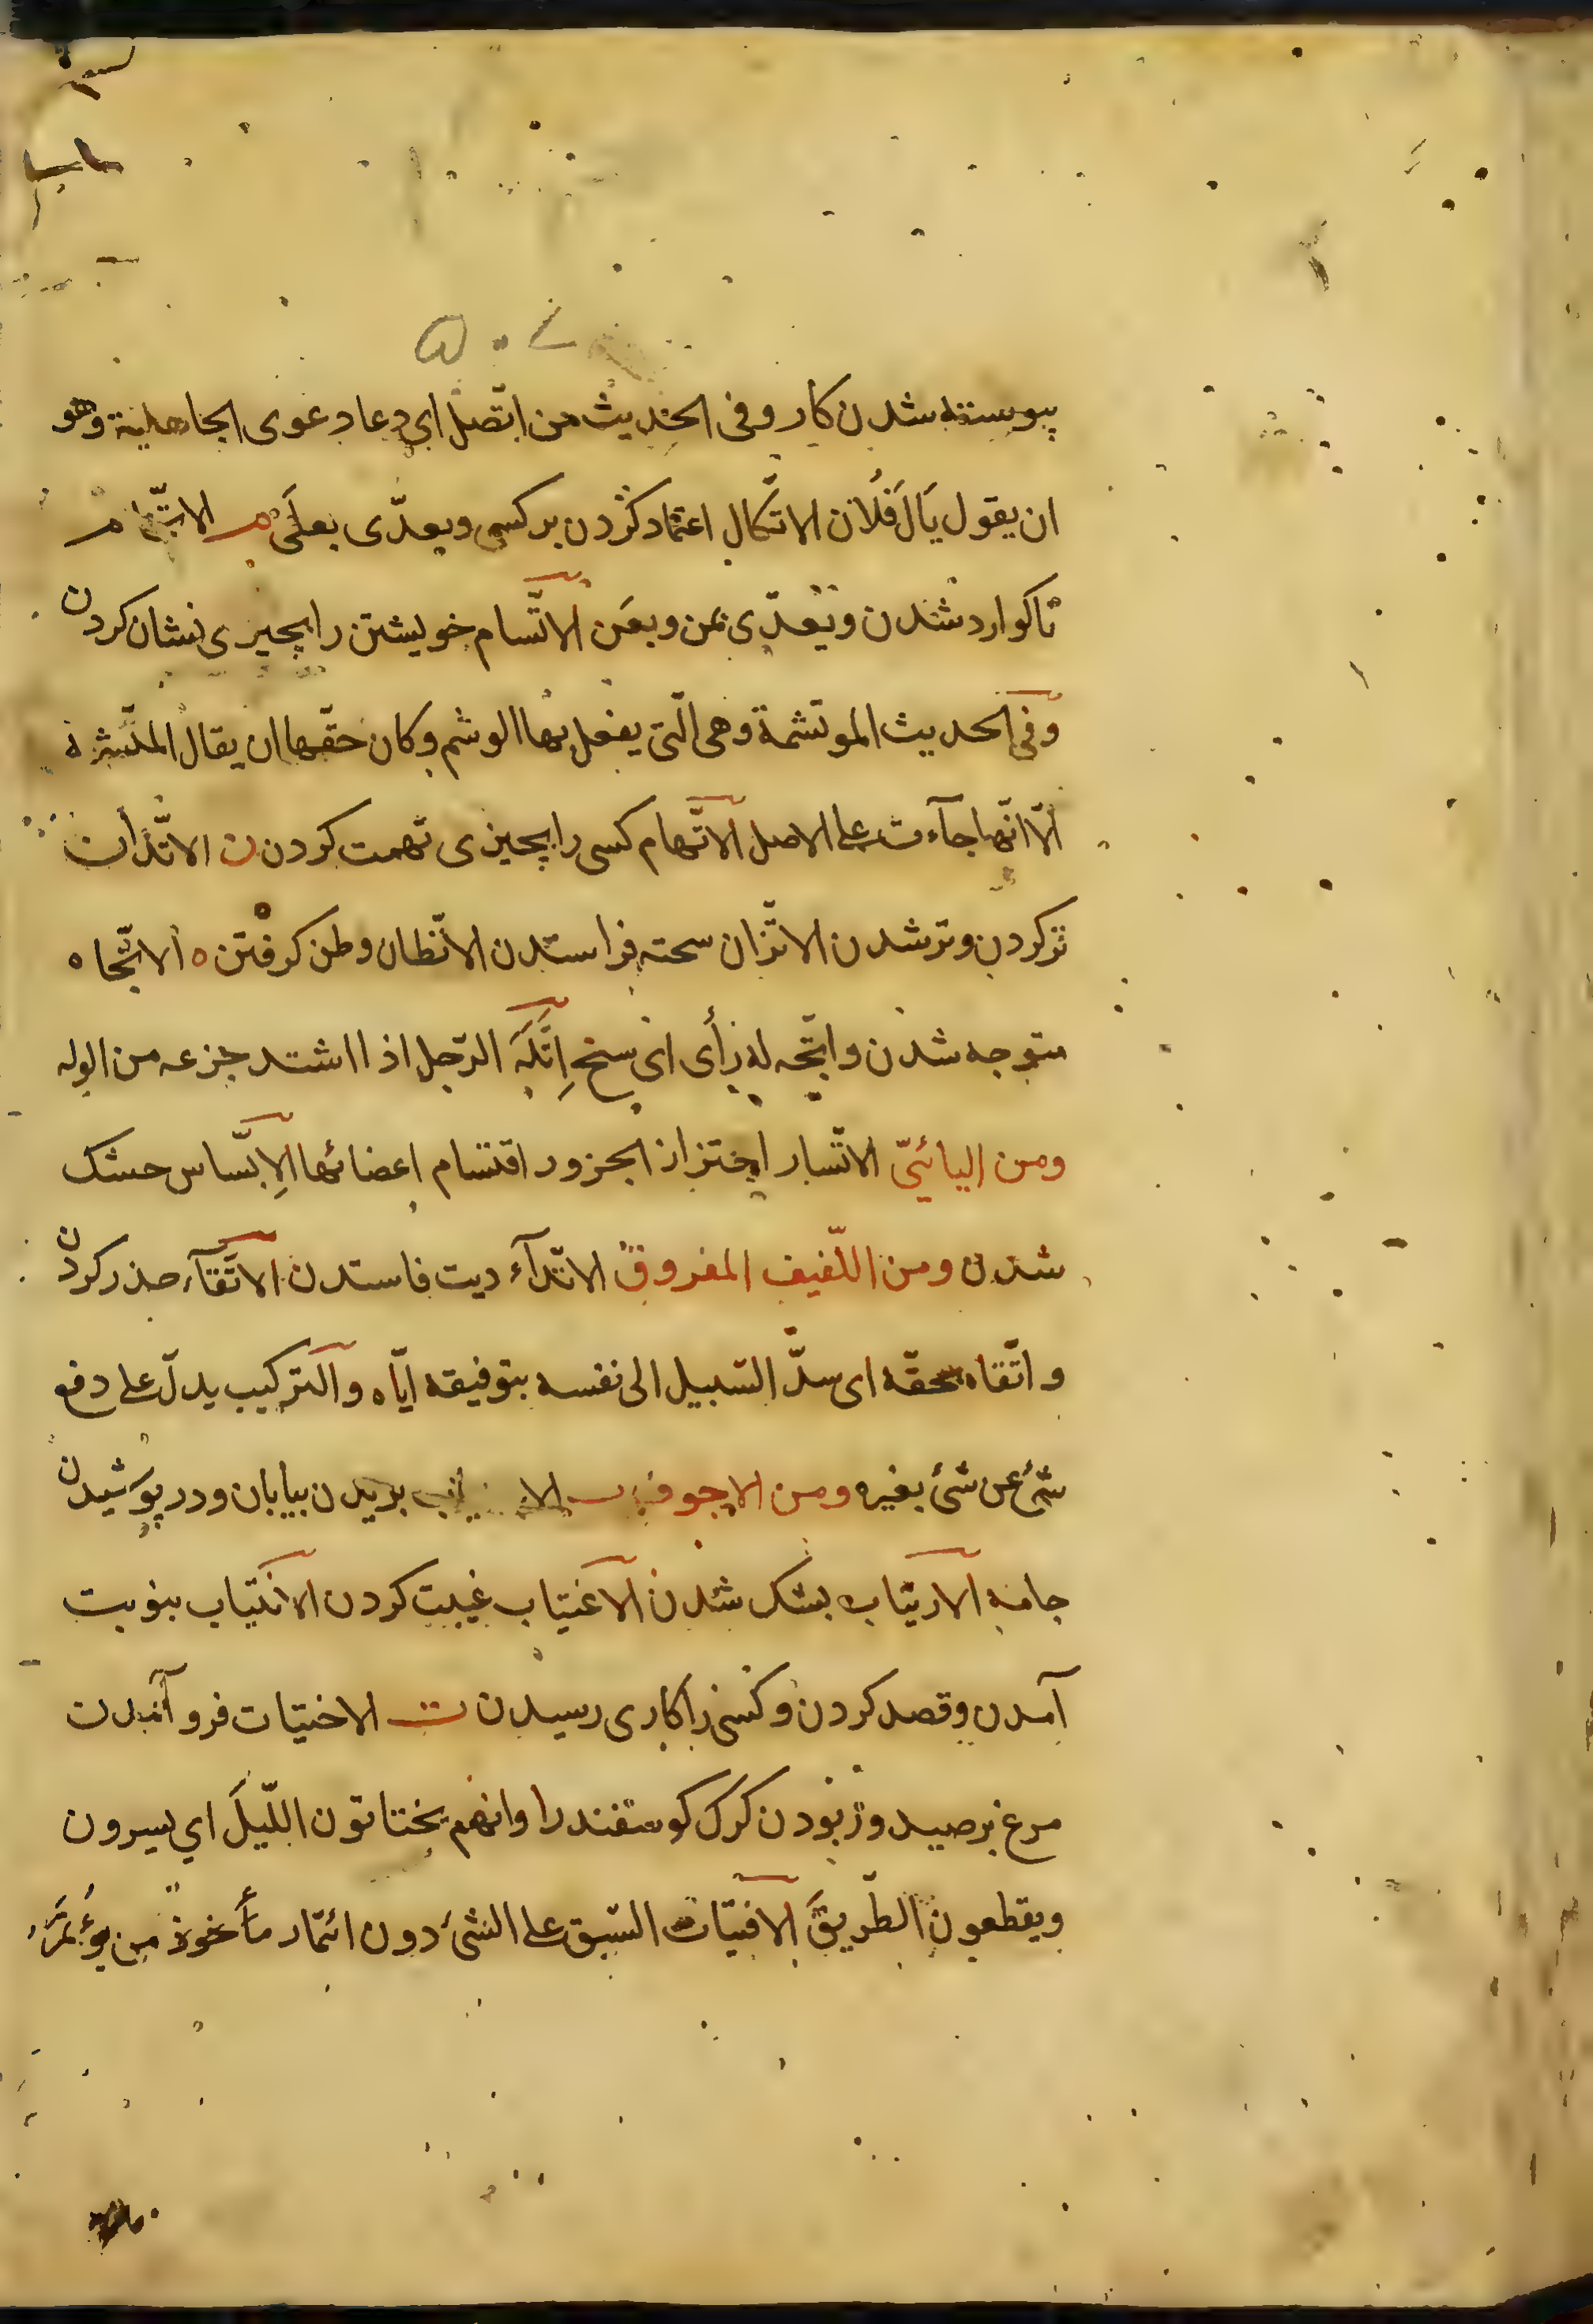 پیوسته شدن کار وفی الحدیث من اتّصل ای دعا دعوی الجاهلیة وهو
ان یقول یَالَ فُلان الاتّکال اعتماد کردن بر کسی ویعدّی بعلَی م الاتّخام
ناکوارد شدن ویعدّی بمن وبعَن الاتّسام خویشتن را بچیزی نشان کردن
وفی الحدیث الموتشمة وهی الّتی یفعل بها الوشم وکان حقّها ان یقال المتّشمة
الّا انّها جآءت علی الاصل الاتّهام کسی را بچیزی تهمت کردن ن الاتّدان
تر کردن وتر شدن الاتّزان سخته فرا ستدن الاتّطان وطن کرفتن ه الاتّجاه
متوجه شدن واتّجه له رأی ای سنح اِتَّلَهَ الرّجل اذا اشتد جزعه من الوله
ومن الیائیّ الاتّسار اجتزار الجزور اقتسام اعضائها الاِتّباس خشک
شدن ومن اللّفیف المفروق الاتّدآء دیت فاستدن الاتّقآء حذر کردن
واتّقاه بحقّه ای سدّ السّبیل الی نفسه بتوفیقه ایّاه والترکیب یدلّ علی دفع
شئ عن شئ بغیره ومن الاجوف ب بریدن بیابان ودر پوشیدن
جامه الارتیاب بشک شدن الاغتیاب غیبت کردن الانتیاب بنوبت
آمدن وقصد کردن وکسی را کاری رسیدن ت الاختیات فرو آمدن
مرغ بر صید وربودن کرک کوسفند را وانهم یختاتون اللّیلَ ای یسیرون
ویقطعون الطّریقَ الافتیات السّبق علی الشئ دون ائتمار مأخوذ من یؤتمر